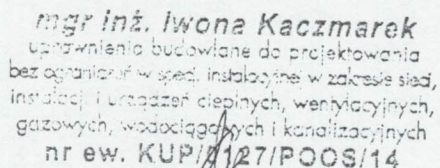 mgr inż. Iwona Kaczmarek
uprawnienia budowlane do projektowania
bez ograniczeń w specj. instalacyjnej w zakresie sieci,
instalacji i urządzeń cieplnych, wentylacyjnych,
gazowych, wodociągowych i kanalizacyjnych
nr ew. KUP/0127/POOS/14